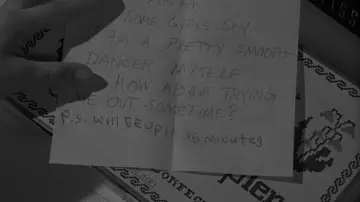 SOME GIRLS SAY
AM A PRETTY SMOOTH
DANCER MYSELF
HOW ABOUT TRYING
ME OUT SOMETIME?
P.S. WILL BE UP IN 15 MINUTES